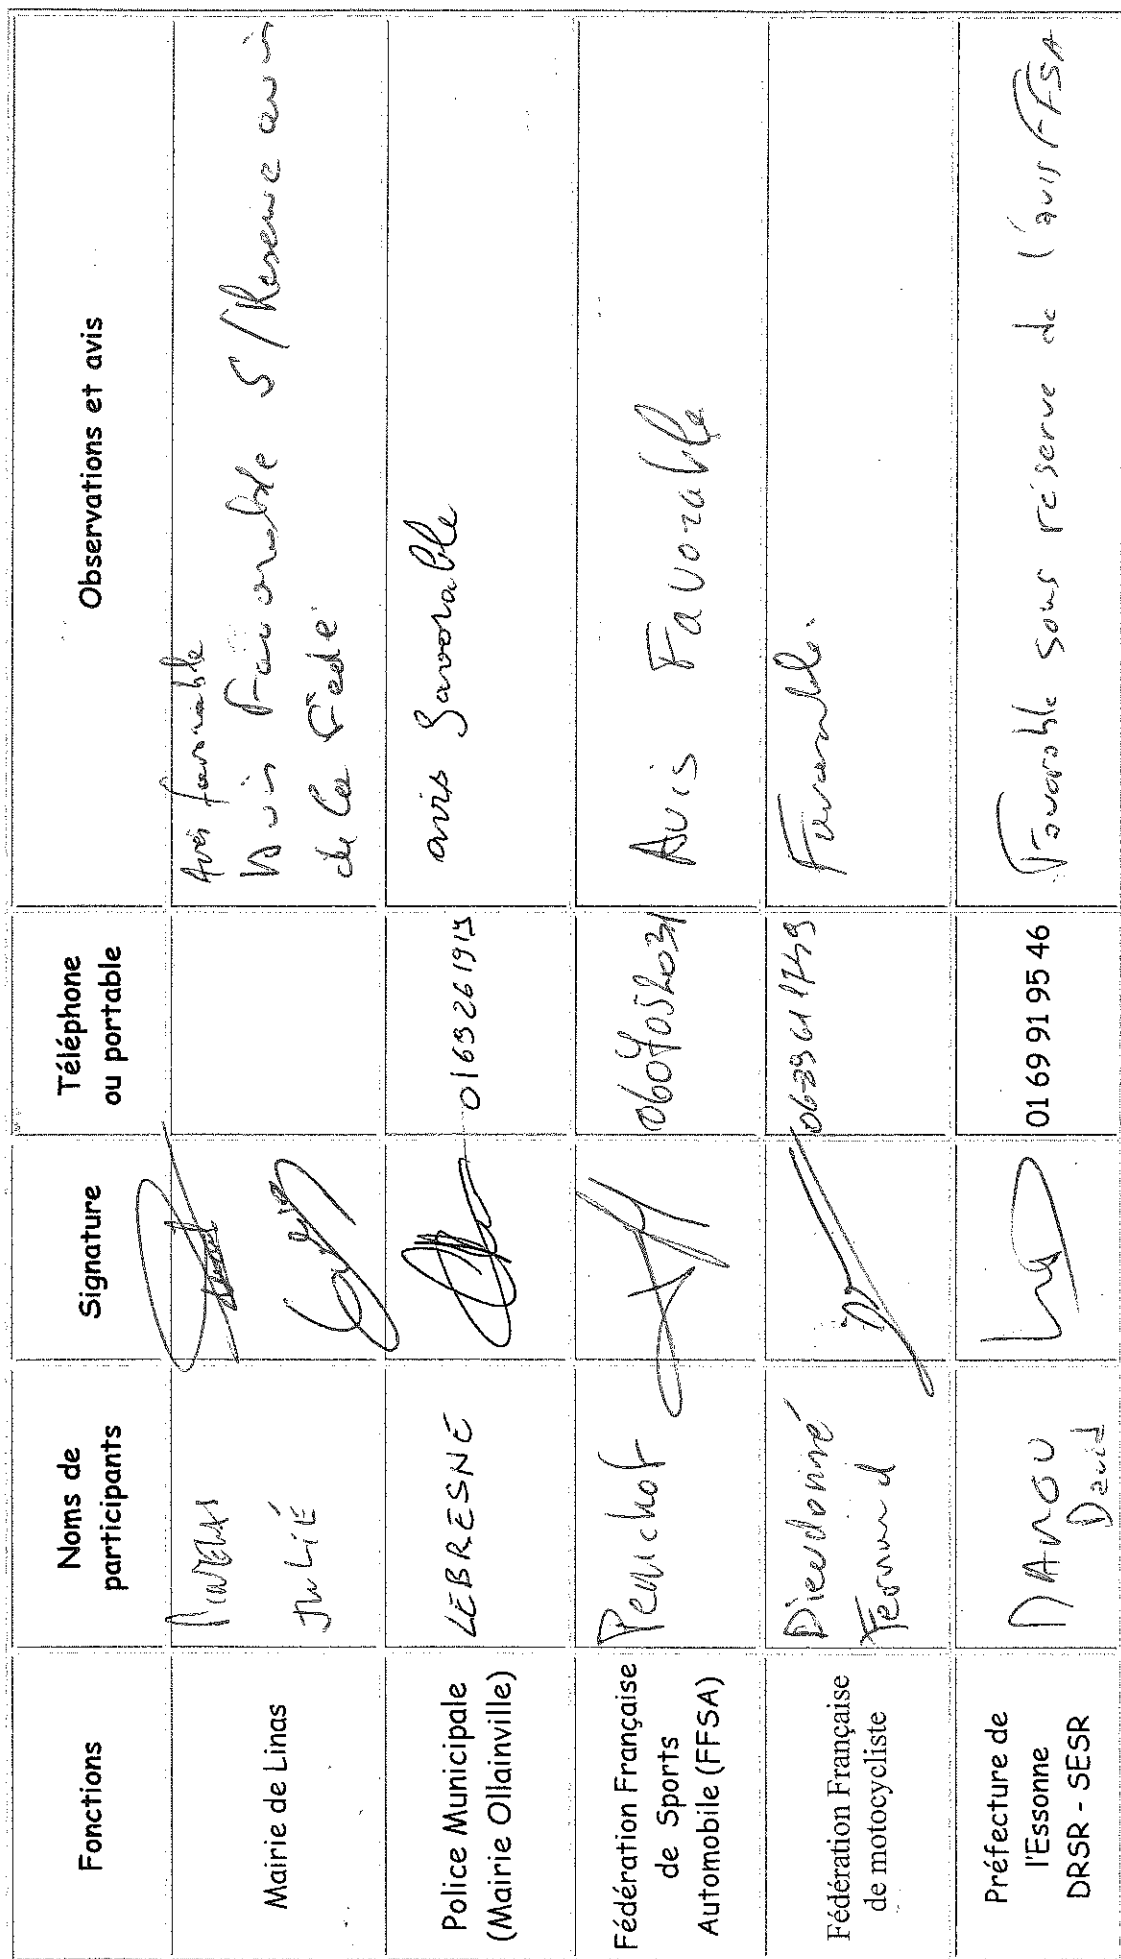 Fonctions
Noms de
participants
Signature
Téléphone
ou portable
Observations et avis
Mairie de Linas
JULIÉ
Avis favorable
Avis Favorable S/Reserve avis
de la Fédé
Police Municipale
(Mairie Ollainville)
LEBRESNÉ
avis favorable
Fédération Française
de Sports
Automobile (FFSA)
Avis Favorable
Fédération Française
de motocycliste
Dieudonné
Fernand
Favorable.
Préfecture de
l'Essonne
DRSR - SESR
David
01 69 91 95 46
Favorable sous réserve de l'avis FFSA